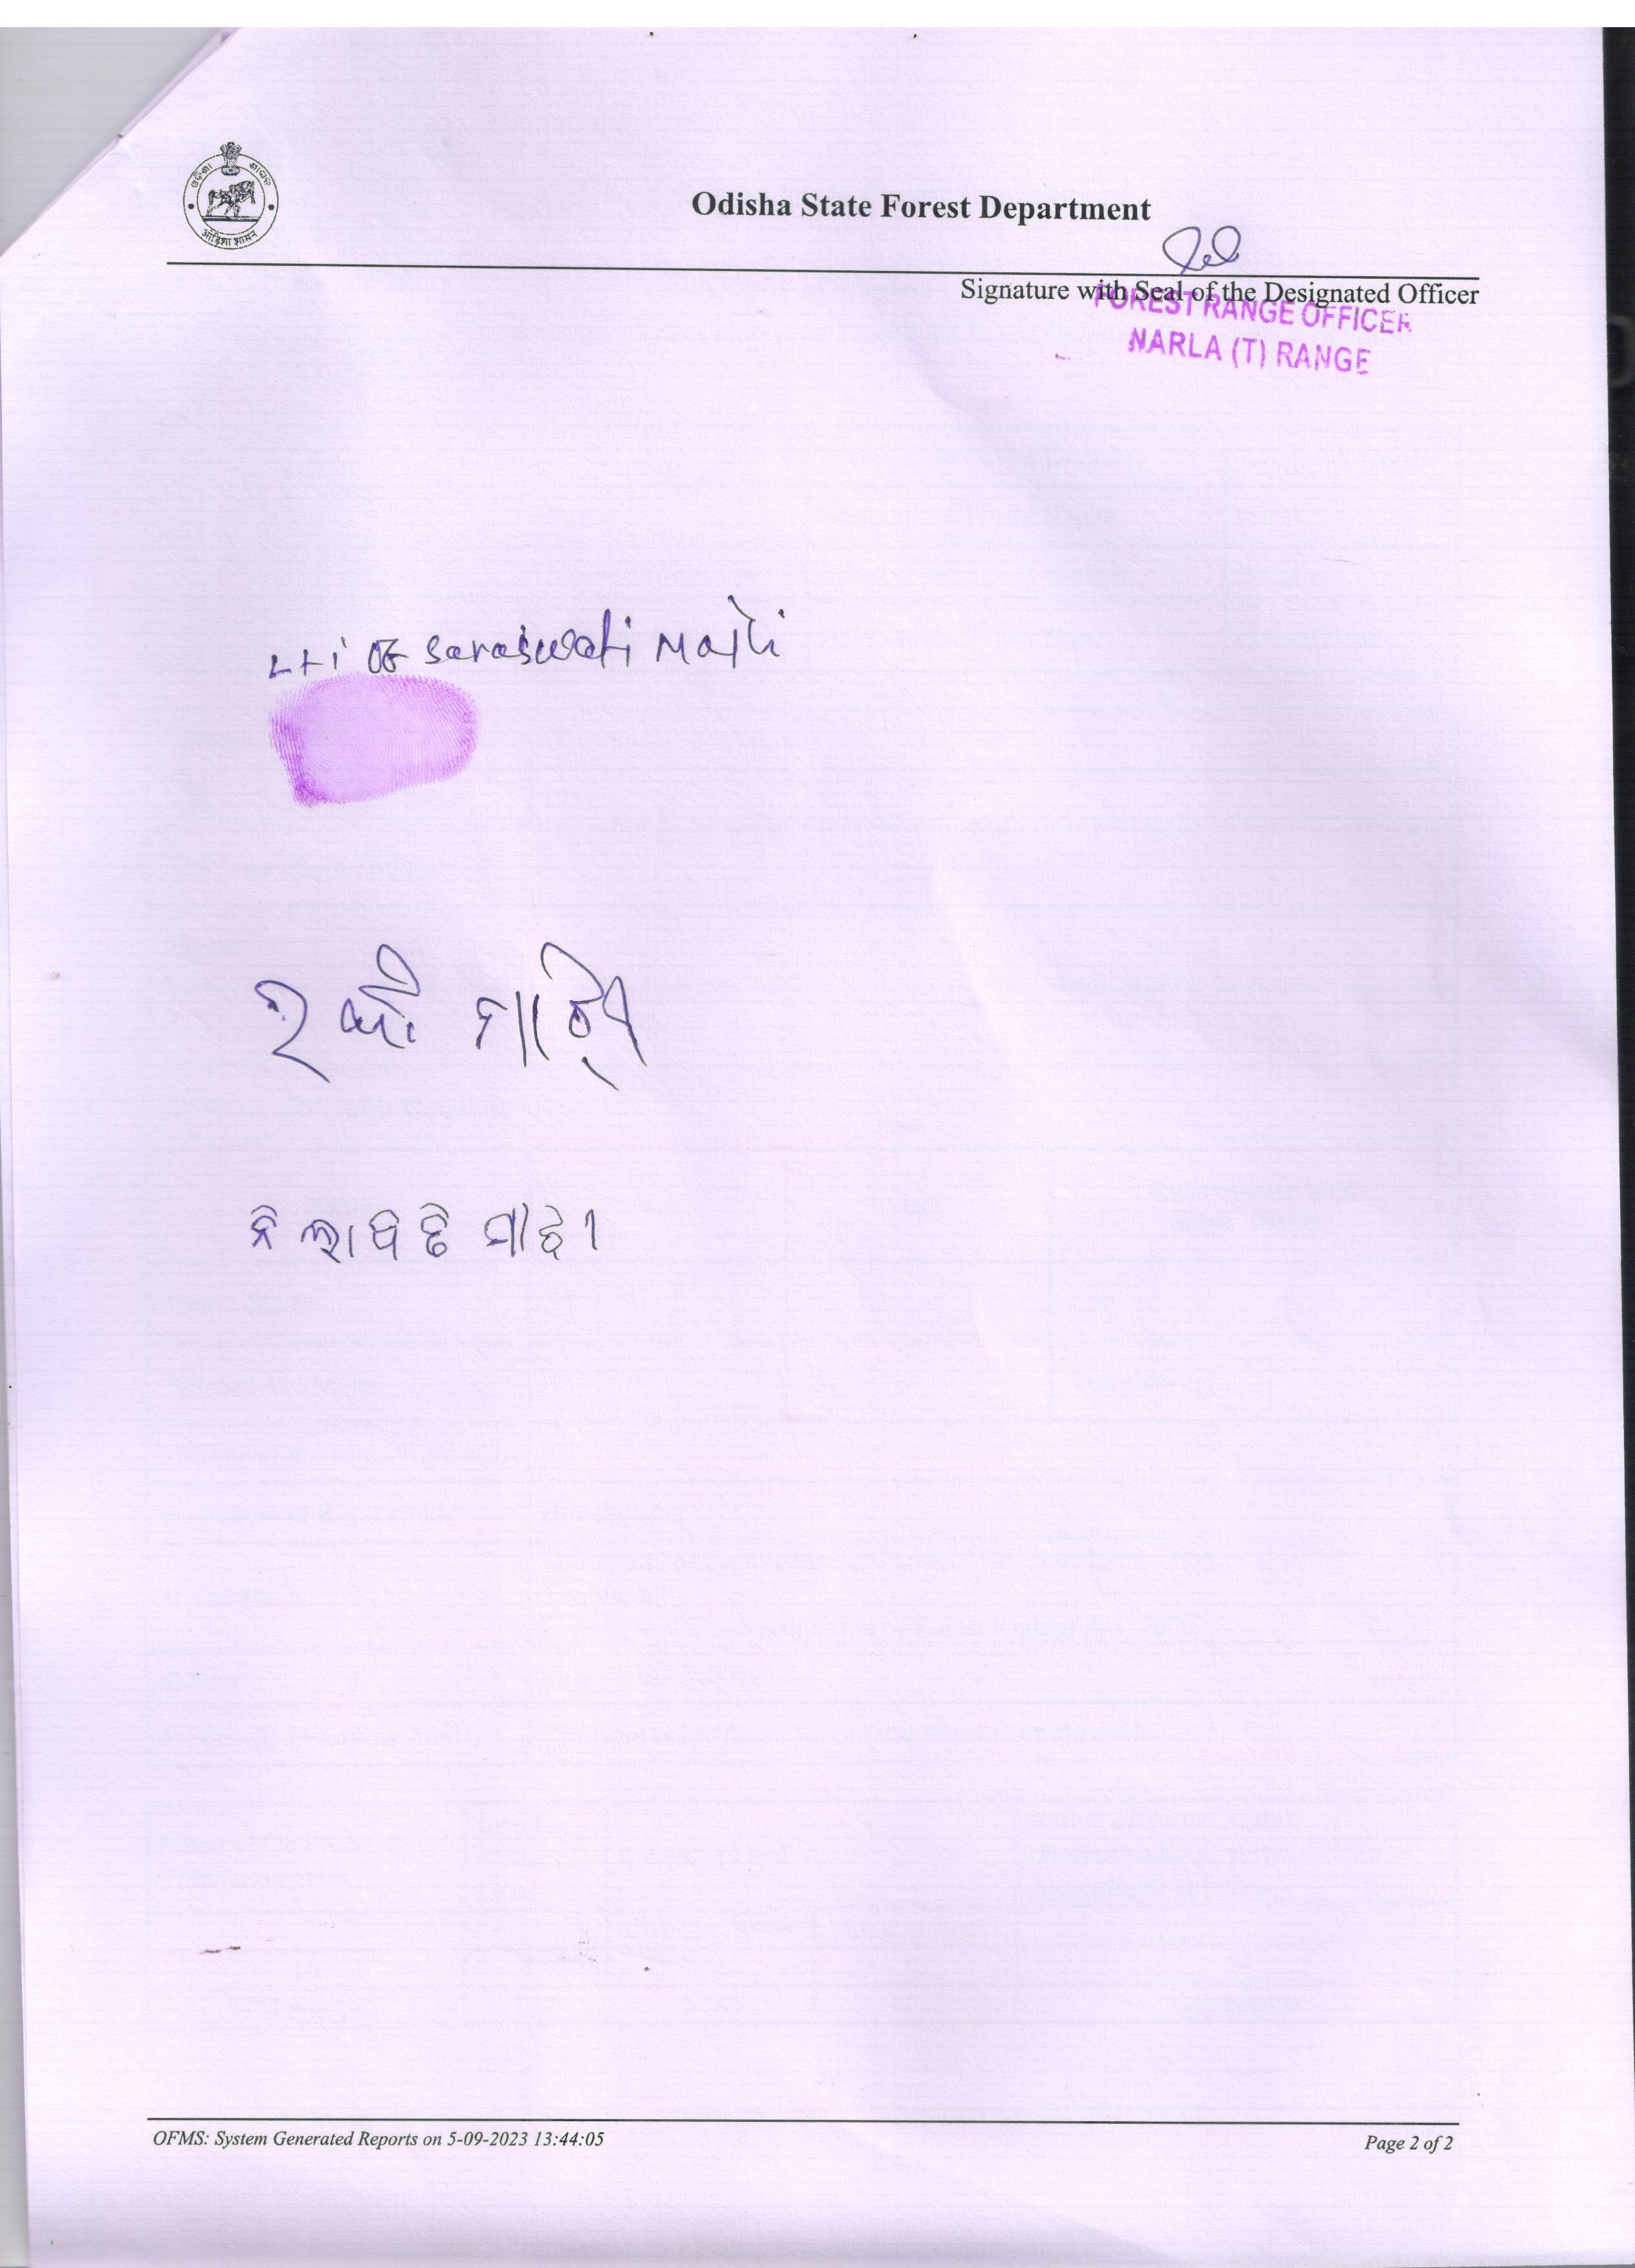 ଓଡ଼ିଶା ଶାସନ
ओड़िशा शासन
Odisha State Forest Department
Signature with Seal of the Designated Officer
FOREST RANGE OFFICER
NARLA (T) RANGE
LTI OF Saraswati Majhi
ମାଝି
OFMS: System Generated Reports on 5-09-2023 13:44:05
Page 2 of 2